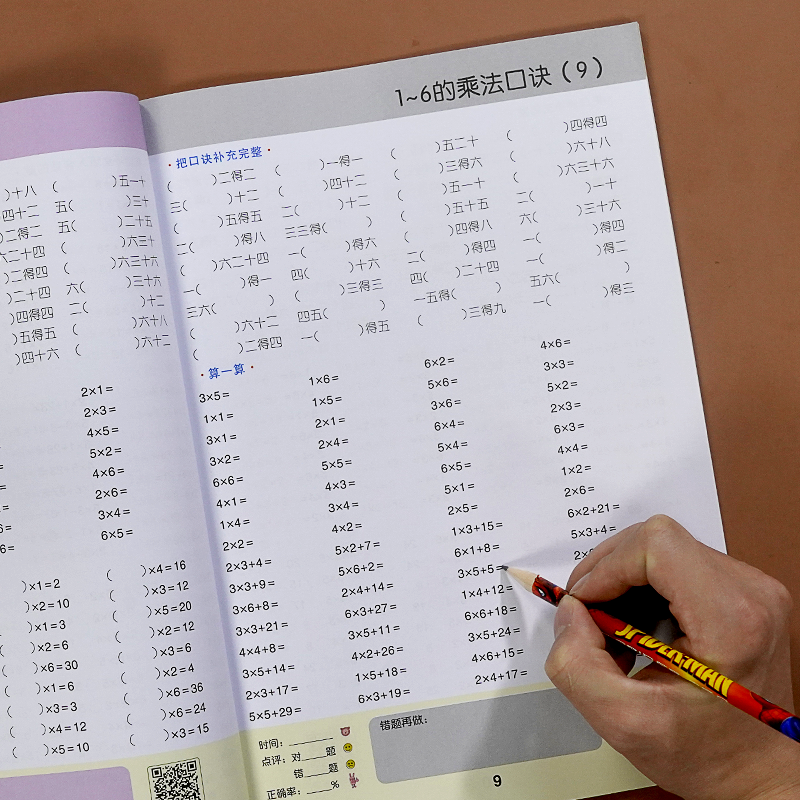 )十八 ( )五一十
)四十二 五( )三十
)二得二 五( )二十五
六二十四 ( )六三十
)二得四 ( )六三十六
)二十四 六( )三十六
)四得四 二( )十二
)五得五 ( )六十八
)四十六 ( )六十二
2×1=
2×3=
4×5=
5×2=
4×6=
2×6=
3×4=
6×5=
)×1=2 ( )×4=16
)×2=10 ( )×3=12
)×1=3 ( )×5=20
)×2=6 ( )×2=12
)×6=30 ( )×3=6
( )×1=6 ( )×2=4
( )×3=3 ( )×6=36
( )×4=12 ( )×6=24
( )×5=10 ( )×3=15
1~6的乘法口诀(9)
·把口诀补充完整·
( )二得二 ( )一得一 ( )五二十 ( )四得四
三( )十二 ( )四十二 ( )三得六 ( )六十八
( )五得五 二( )十二 ( )五一十 ( )六三十六
二( )得八 三三得( ) ( )五十五 二( )一十
( )六二十四 一( )得六 ( )四得八 六( )三十六
一( )得一 四( )十六 二( )得四 一( )得四
三六( ) ( )三得三 四( )二十四 一( )得二
( )六十二 四五( ) 一五得( ) 五六( )
( )二得四 一( )得五 ( )三得九 一( )得三
·算一算·
3×5= 1×6= 6×2= 4×6=
1×1= 1×5= 5×6= 3×3=
3×1= 2×1= 3×6= 5×2=
3×2= 2×4= 6×4= 2×3=
6×6= 5×5= 5×4= 6×3=
4×1= 4×3= 6×5= 4×4=
1×4= 3×4= 5×1= 1×2=
2×2= 4×2= 2×5= 2×6=
2×3+4= 5×2+7= 1×3+15= 6×2+21=
3×3+9= 5×6+2= 6×1+8= 5×3+4=
3×6+8= 2×4+14= 3×5+5= 2×
3×3+21= 6×3+27= 1×4+12=
4×4+8= 3×5+11= 6×6+18=
3×5+14= 4×2+26= 3×5+24=
2×3+17= 1×5+18= 4×6+15=
5×5+29= 6×3+19= 2×4+17=
时间：______
点评：对____题
错____题
正确率：____%
错题再做：
9
SPIDER-MAN